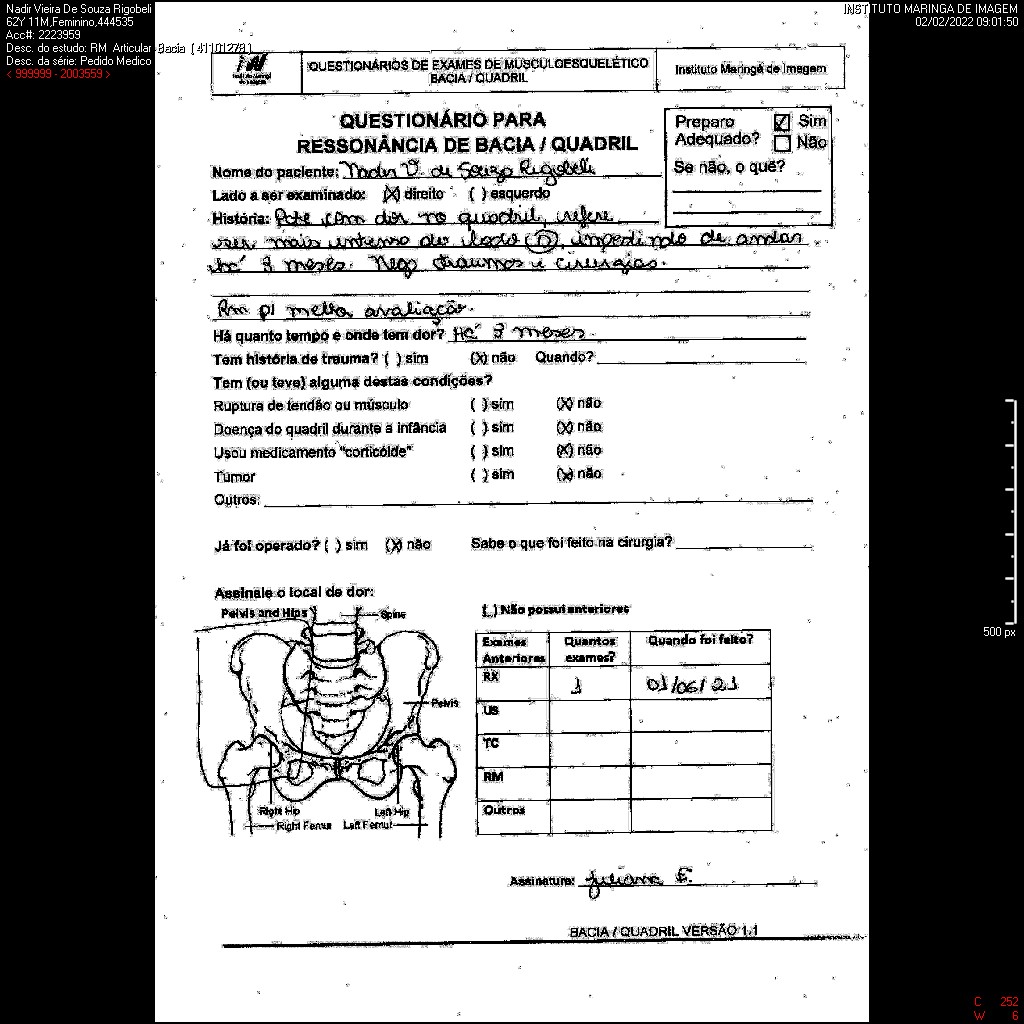 Nadir Vieira De Souza Rigobeli
62Y 11M,Feminino,444535
Acc#: 2223959
Desc. do estudo: RM Articular Bacia [41101278]
Desc. da série: Pedido Medico
< 999999 - 2003559 >
INSTITUTO MARINGA DE IMAGEM
02/02/2022 09:01:50
QUESTIONÁRIOS DE EXAMES DE MUSCULOESQUELÉTICO
BACIA / QUADRIL
Instituto Maringá de Imagem
QUESTIONÁRIO PARA
RESSONÂNCIA DE BACIA / QUADRIL
Preparo Adequado? ☑ Sim ☐ Não
Se não, o quê?
Nome do paciente: Nadir V. de Souza Rigobeli
Lado a ser examinado: (X) direito ( ) esquerdo
História: Pcte com dor no quadril, refere
ser mais intenso do lado (D), impedindo de andar
há 8 meses. Nega traumas e cirurgias.
Rm p/ melhor avaliação.
Há quanto tempo e onde tem dor? Há 8 meses.
Tem história de trauma? ( ) sim (X) não Quando?
Tem (ou teve) alguma destas condições?
Ruptura de tendão ou músculo ( ) sim (X) não
Doença do quadril durante a infância ( ) sim (X) não
Usou medicamento "corticóide" ( ) sim (X) não
Tumor ( ) sim (X) não
Outros:
Já foi operado? ( ) sim (X) não Sabe o que foi feito na cirurgia?
Assinale o local de dor:
Pelvis and Hips
Spine
Pelvis
Right Hip
Left Hip
Right Femur
Left Femur
( ) Não possui anteriores
Exames Anteriores Quantos exames? Quando foi feito?
RX 1 01/06/21
US
TC
RM
Outros
Assinatura: Juliana E.
BACIA / QUADRIL VERSÃO 1.1
500 px
C 252
W 6